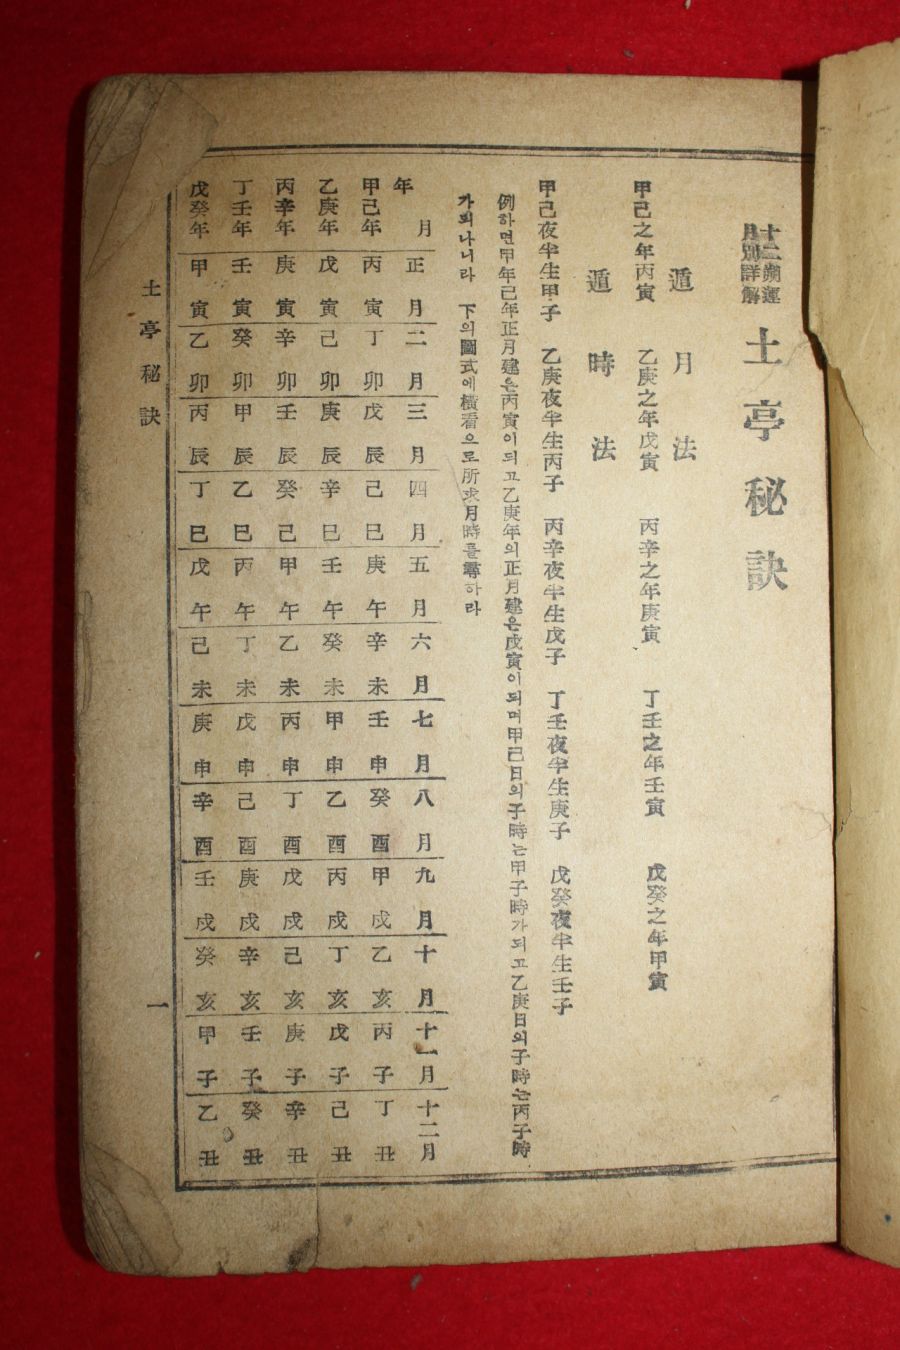 十二朔運
月別詳解
土亭秘訣
遁月法
甲己之年丙寅 乙庚之年戊寅 丙辛之年庚寅 丁壬之年壬寅 戊癸之年甲寅
遁時法
甲己夜半生甲子 乙庚夜半生丙子 丙辛夜半生戊子 丁壬夜半生庚子 戊癸夜半生壬子
例하면甲年己年正月建은丙寅이되고乙庚年의正月建은戊寅이되며甲己日의子時는甲子時가되고乙庚日의子時는丙子時
가되나니라 下의圖式에橫看으로所求月時를尋하라
年 月 正月 二月 三月 四月 五月 六月 七月 八月 九月 十月 十一月 十二月
甲己年 丙寅 丁卯 戊辰 己巳 庚午 辛未 壬申 癸酉 甲戌 乙亥 丙子 丁丑
乙庚年 戊寅 己卯 庚辰 辛巳 壬午 癸未 甲申 乙酉 丙戌 丁亥 戊子 己丑
丙辛年 庚寅 辛卯 壬辰 癸巳 甲午 乙未 丙申 丁酉 戊戌 己亥 庚子 辛丑
丁壬年 壬寅 癸卯 甲辰 乙巳 丙午 丁未 戊申 己酉 庚戌 辛亥 壬子 癸丑
戊癸年 甲寅 乙卯 丙辰 丁巳 戊午 己未 庚申 辛酉 壬戌 癸亥 甲子 乙丑
土亭秘訣 一